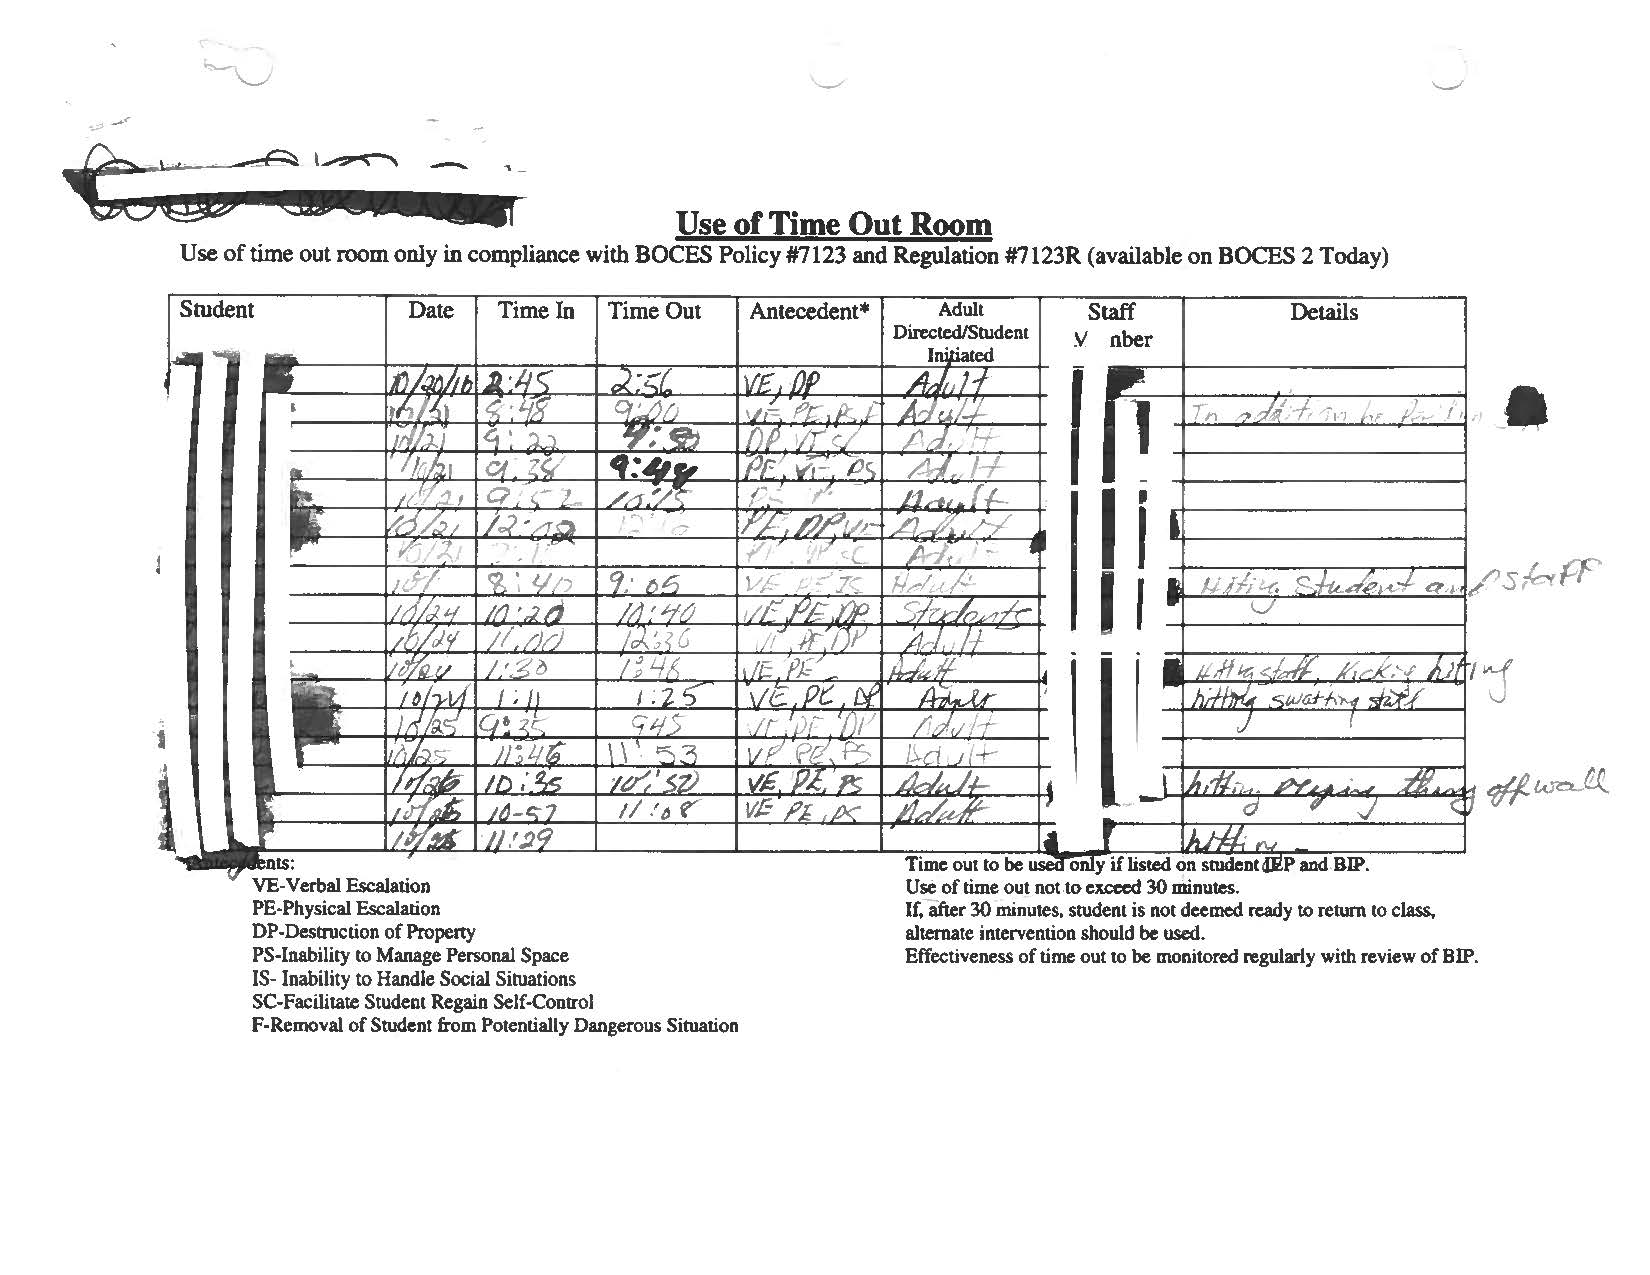 Use of Time Out Room
Use of time out room only in compliance with BOCES Policy #7123 and Regulation #7123R (available on BOCES 2 Today)
Student Date Time In Time Out Antecedent* Adult Directed/Student Initiated Staff nber Details
10/20/10 2:45 2:56 VE, DP Adult
10/21 8:48 9:00 VE, PE, Adult In addition he
10/21 9:22 DP, Adult
10/21 9:38 9:44 PE, VE, PS Adult
10/21 9:52 10:15 Adult
10/21 12:02 PE, DP, VE Adult
10/21
8:40 9:05 VE Adult Hitting Student and Staff
10/24 10:20 10:40 VE, PE, DP Students
10/24 11:00 12:36 PE, DP Adult
10/24 1:30 1:48 VE, PE Adult Hitting staff, Kicking hitting
10/24 1:11 1:25 VE, PE, DP Adult hitting swatting staff
10/25 9:35 945 VE, PE, DP Adult
10/25 11:46 11:53 VE PE, PS Adult
10/26 10:35 10:52 VE, PE, PS Adult hitting off wall
10-57 11:08 VE PE, PS Adult
11:29 hitting
VE-Verbal Escalation
PE-Physical Escalation
DP-Destruction of Property
PS-Inability to Manage Personal Space
IS- Inability to Handle Social Situations
SC-Facilitate Student Regain Self-Control
F-Removal of Student from Potentially Dangerous Situation
Time out to be used only if listed on student IEP and BIP.
Use of time out not to exceed 30 minutes.
If, after 30 minutes, student is not deemed ready to return to class,
alternate intervention should be used.
Effectiveness of time out to be monitored regularly with review of BIP.